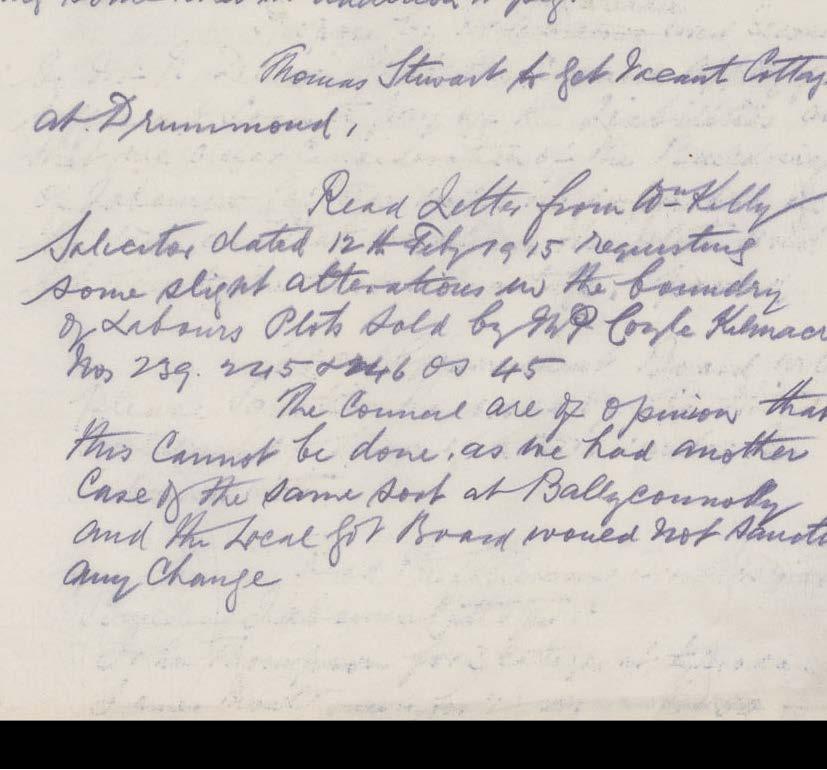 Thomas Stewart to get Vacant Cottag
at Drummond,
Read Letter from Wm Kelly
Solicitor dated 12th Feby 1915 requesting
some slight alterations in the boundry
of Labours Plots sold by Coyle Kilmacr
Nos 239. 245 & 246 OS 45
The Council are of opinion that
this Cannot be done, as we had another
Case of the same sort at Ballyconnolly
and the Local Gvt Board would not Sancti
any Change